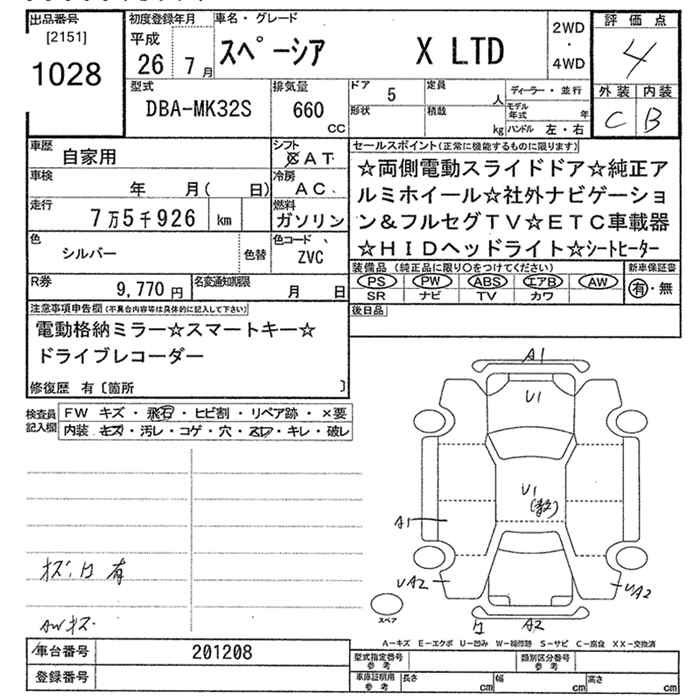 出品番号
[2151]
1028
初度登録年月
平成
26 7月
車名・グレード
スペーシア X LTD
2WD
・
4WD
評価点
4
外装 内装
C B
型式
DBA-MK32S
排気量
660
CC
ドア 5
形状
定員 人
積載 kg
ディーラー・並行
モデル年式 年
ハンドル 左・右
車歴
自家用
シフト
CAT
車検
年 月( 日)
冷房
AC
走行
7万5千926 km
燃料
ガソリン
色
シルバー
色替
色コード
ZVC
R券
9,770円
名変通知期限
月 日
セールスポイント(正常に機能するものに限ります)
☆両側電動スライドドア☆純正ア
ルミホイール☆社外ナビゲーショ
ン&フルセグTV☆ETC車載器
☆HIDヘッドライト☆シートヒーター
装備品(純正品に限り○をつけてください)
PS PW ABS エアB AW
SR ナビ TV カワ
新車保証書
有・無
後日品
注意事項申告欄(不具合内容等は具体的に記入して下さい)
電動格納ミラー☆スマートキー☆
ドライブレコーダー
修復歴 有〔箇所 〕
検査員
記入欄
FW キズ・飛石・ヒビ割・リペア跡・×要
内装 キズ・汚レ・コゲ・穴・スレ・キレ・破レ
A1
U1
U1
A1
UA2
UA2
A2
スペア
有
AWキズ
A-キズ E-エクボ U-凹み W-補修跡 S-サビ C-腐食 XX-交換済
車台番号 201208
登録番号
型式指定番号
参考
類別区分番号
参考
車庫証明用
参考
長さ cm 幅 cm 高さ cm